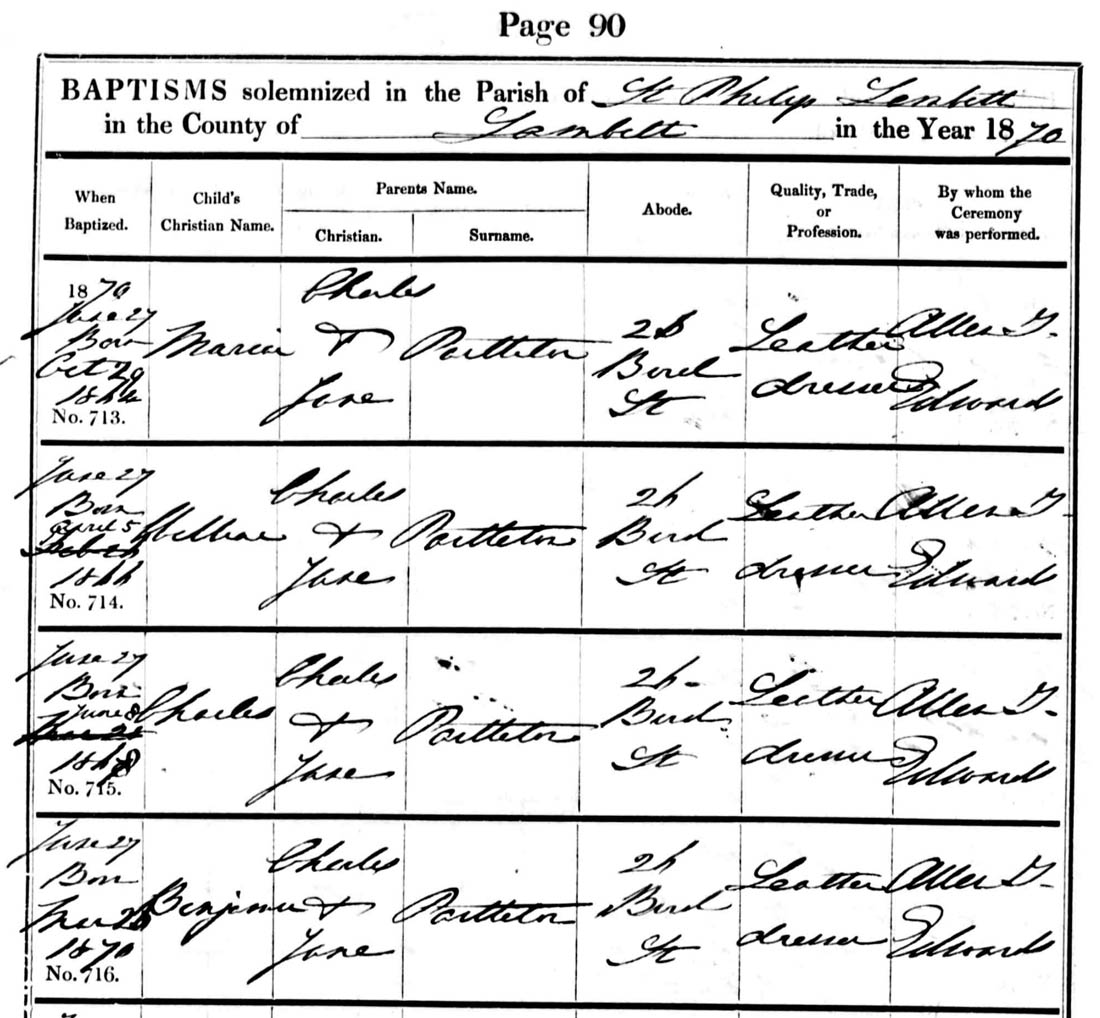 Page 90
BAPTISMS solemnized in the Parish of St Philip Lambeth
in the County of Lambeth in the Year 1870
When Baptized.
Child's Christian Name.
Parents Name.
Christian.
Surname.
Abode.
Quality, Trade, or Profession.
By whom the Ceremony was performed.
1870
June 27
Born
Oct 29
No. 713.
Maria
Charles
&
Jane
Partleton
Bird
St
Leather
dresser
Allen T.
Edwards
June 27
Born
April 5
1866
No. 714.
Charles
&
Jane
Partleton
26
Bird
St
Leather
dresser
Allen T.
Edwards
June 27
Born
June 8
1868
No. 715.
Charles
Charles
&
Jane
Partleton
26
Bird
St
Leather
dresser
Allen T.
Edwards
June 27
Born
Mar 26
1870
No. 716.
Benjamin
Charles
&
Jane
Partleton
26
Bird
St
Leather
dresser
Allen T.
Edwards